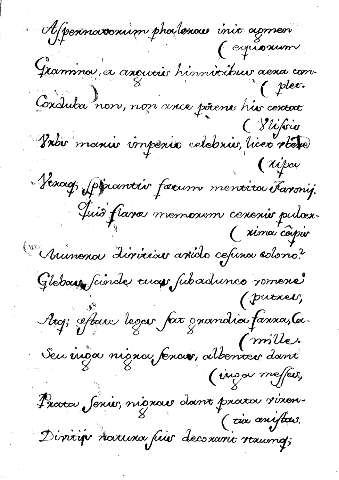 Aspernatorum phaleras init agmen
(equorum
Gramina, et argutis hinnitibus aera com-
(plet.
Corduba non, non arce potens his certat
(Ulissis
Urbs maris imperio celebris, licet
(ripa
Utraq; spirantis foetum mentita Favonij.
Quid flava memorum cereris pulcer-
(rima campis
Munera divitias avido cessura colono?
Glebas scinde tuas subadunco vomere
(putres,
Atq; estate leges sat grandia farra, Ca-
(mille.
Seu iuga nigra seras, albentes dant
(iuga messes,
Prata seris, nigras dant prata viren-
(tia aristas.
Divitijs natura suis decoravit utrumq;